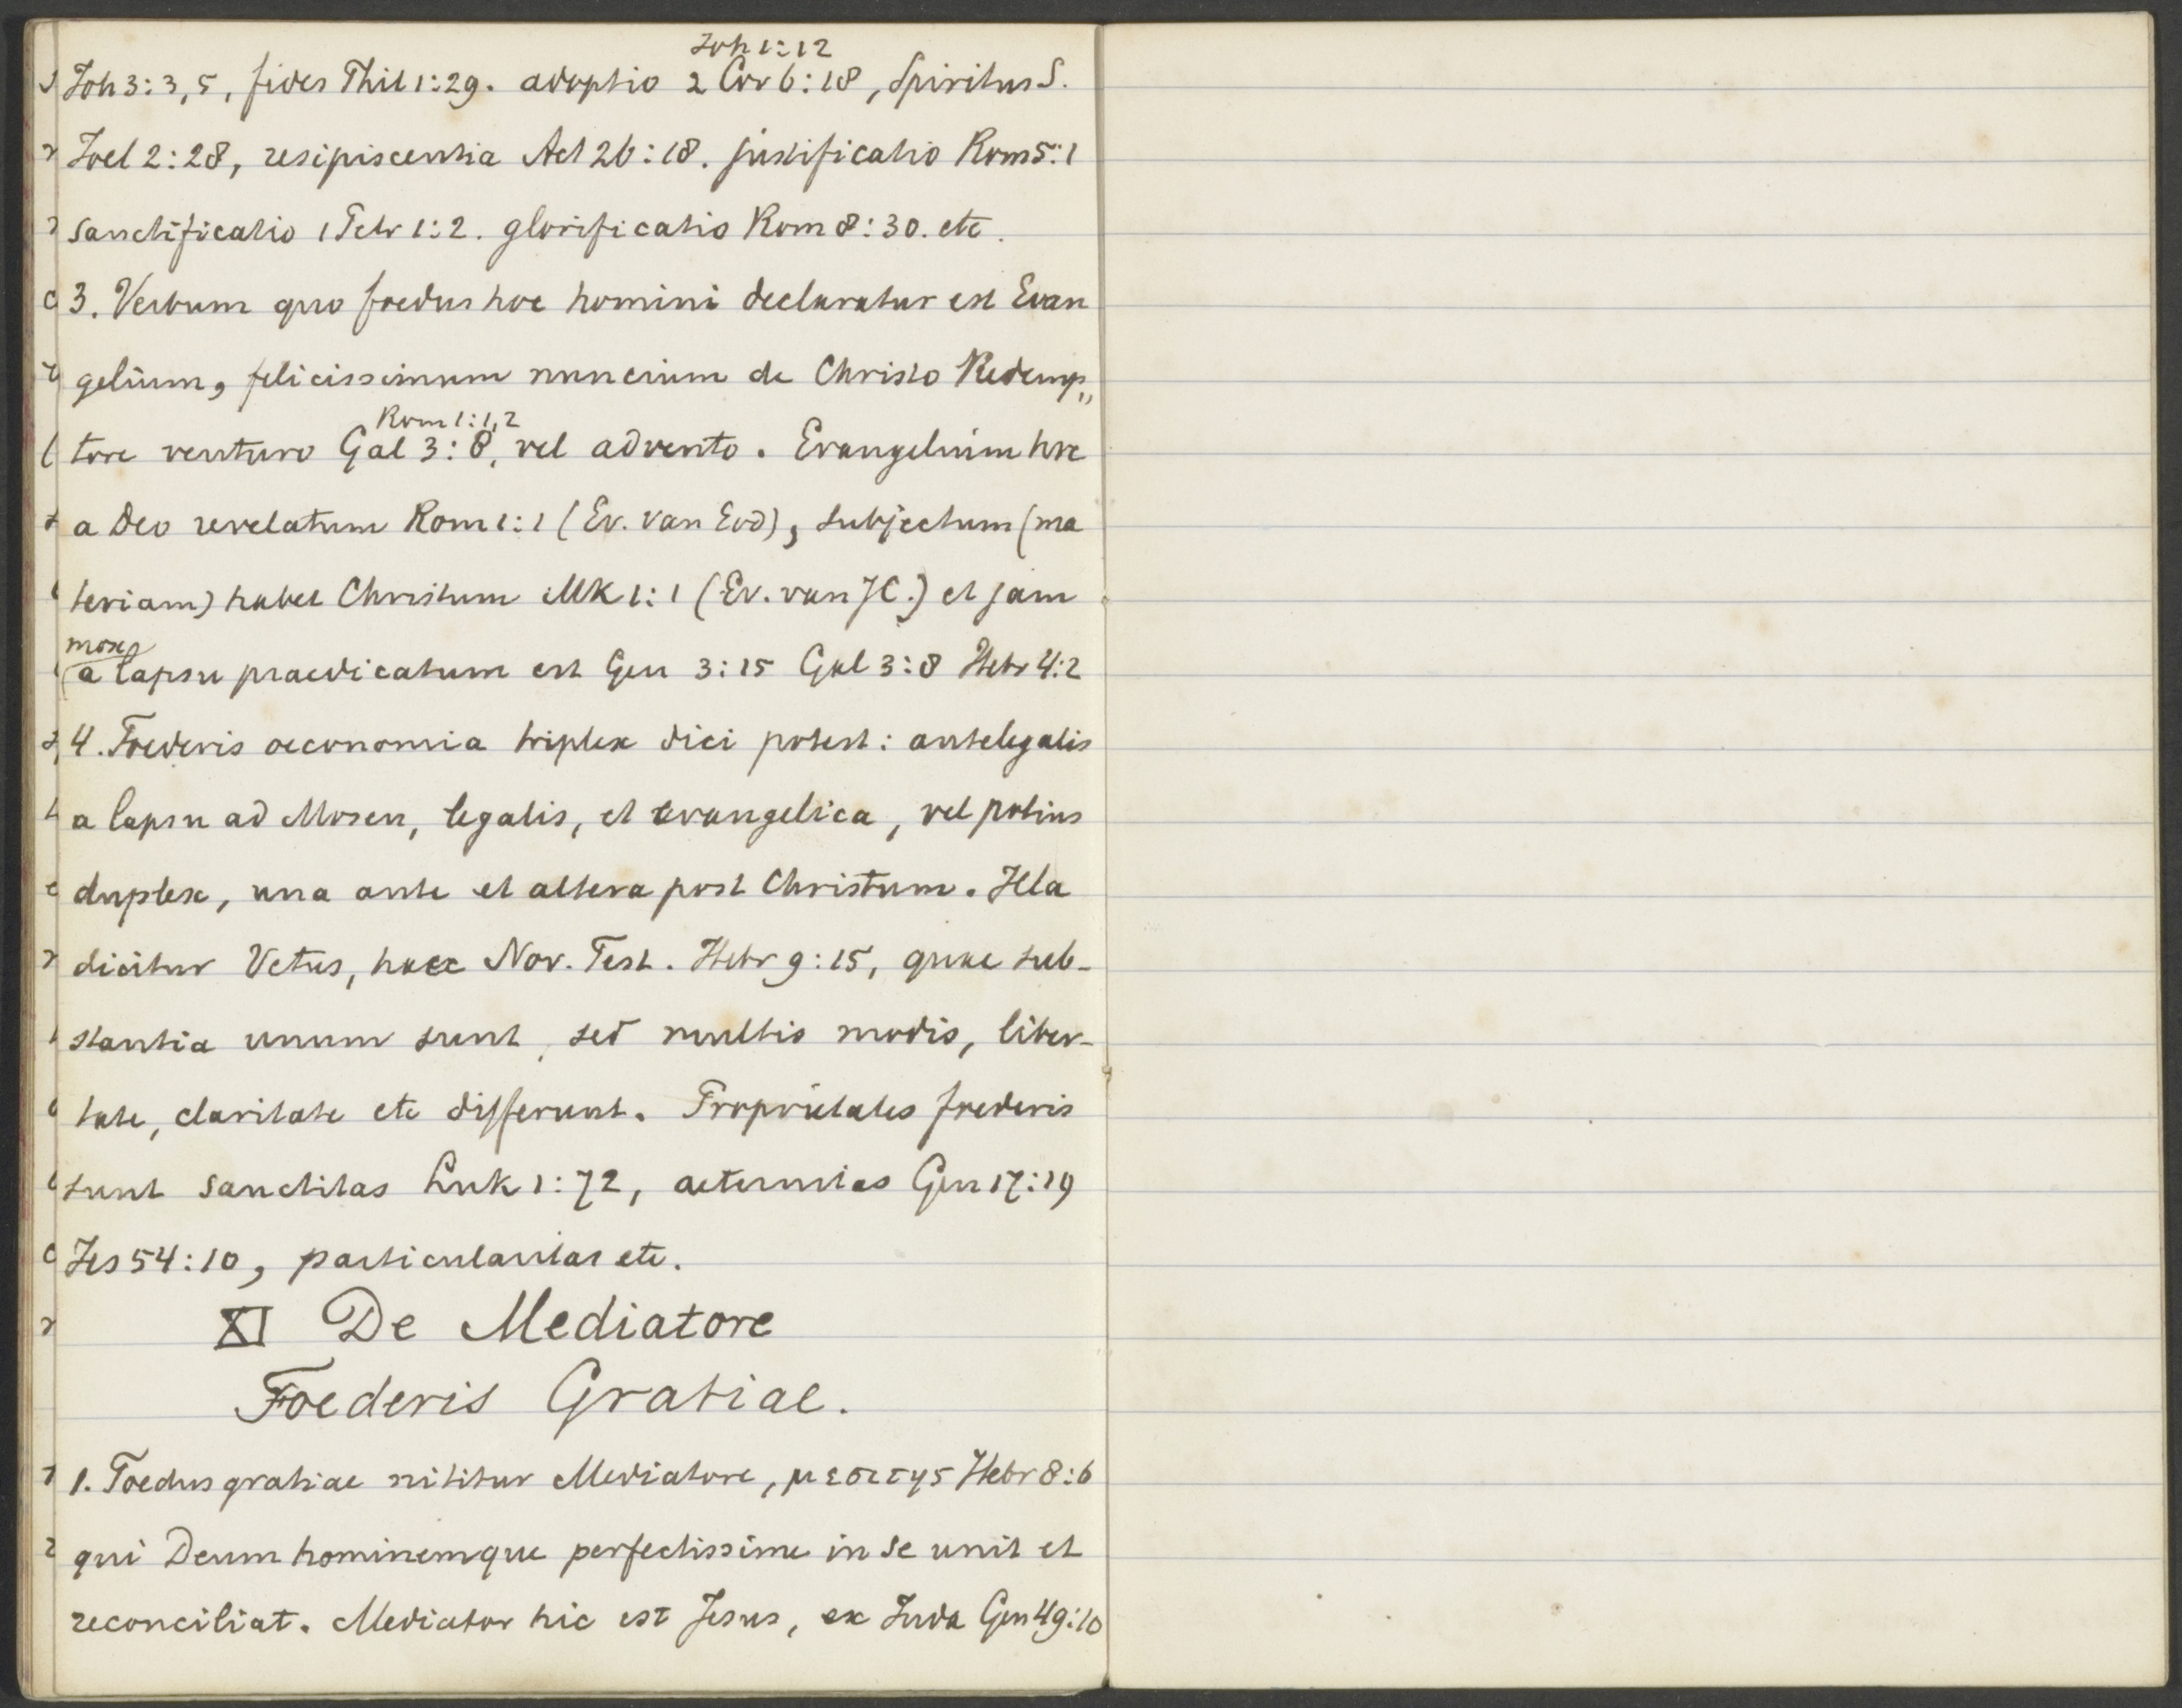 Joh 1:12
Joh 3:3,5, fides Phil 1:29. adoptio 2 Cor 6:18, Spiritus S.
Joel 2:28, resipiscentia Act 26:18. justificatio Rom 5:1
sanctificatio 1 Petr 1:2. glorificatio Rom 8:30. etc.
3. Verbum quo foedus hoc homini declaratur est Evan
gelium, felicissimum nuncium de Christo Redemp„
Rom 1:1,2
tore venturo Gal 3:8, vel advento. Evangelium hoc
a Deo revelatum Rom 1:1 (Ev. van God), subjectum (ma
teriam) habet Christum Mk 1:1 (Ev. van JC.) et jam
mox
a lapsu praedicatum est Gen 3:15 Gal 3:8 Hebr 4:2
4. Foederis oeconomia triplex dici potest: antelegalis
a lapsu ad Mosen, legalis, et evangelica, vel potius
duplex, una ante et altera post Christum. Illa
dicitur Vetus, haec Nov. Test. Hebr 9:15, quae sub-
stantia unum sunt, sed multis modis, liber-
tate, claritate etc differunt. Proprietates foederis
sunt sanctitas Luk 1:72, aeternitas Gen 17:19
Jes 54:10, particularitas etc.
XI De Mediatore
Foederis Gratiae.
1. Foedus gratiae nititur Mediatore, μεσιτης Hebr 8:6
qui Deum hominemque perfectissime in se unit et
reconciliat. Mediator hic est Jesus, ex Juda Gen 49:10